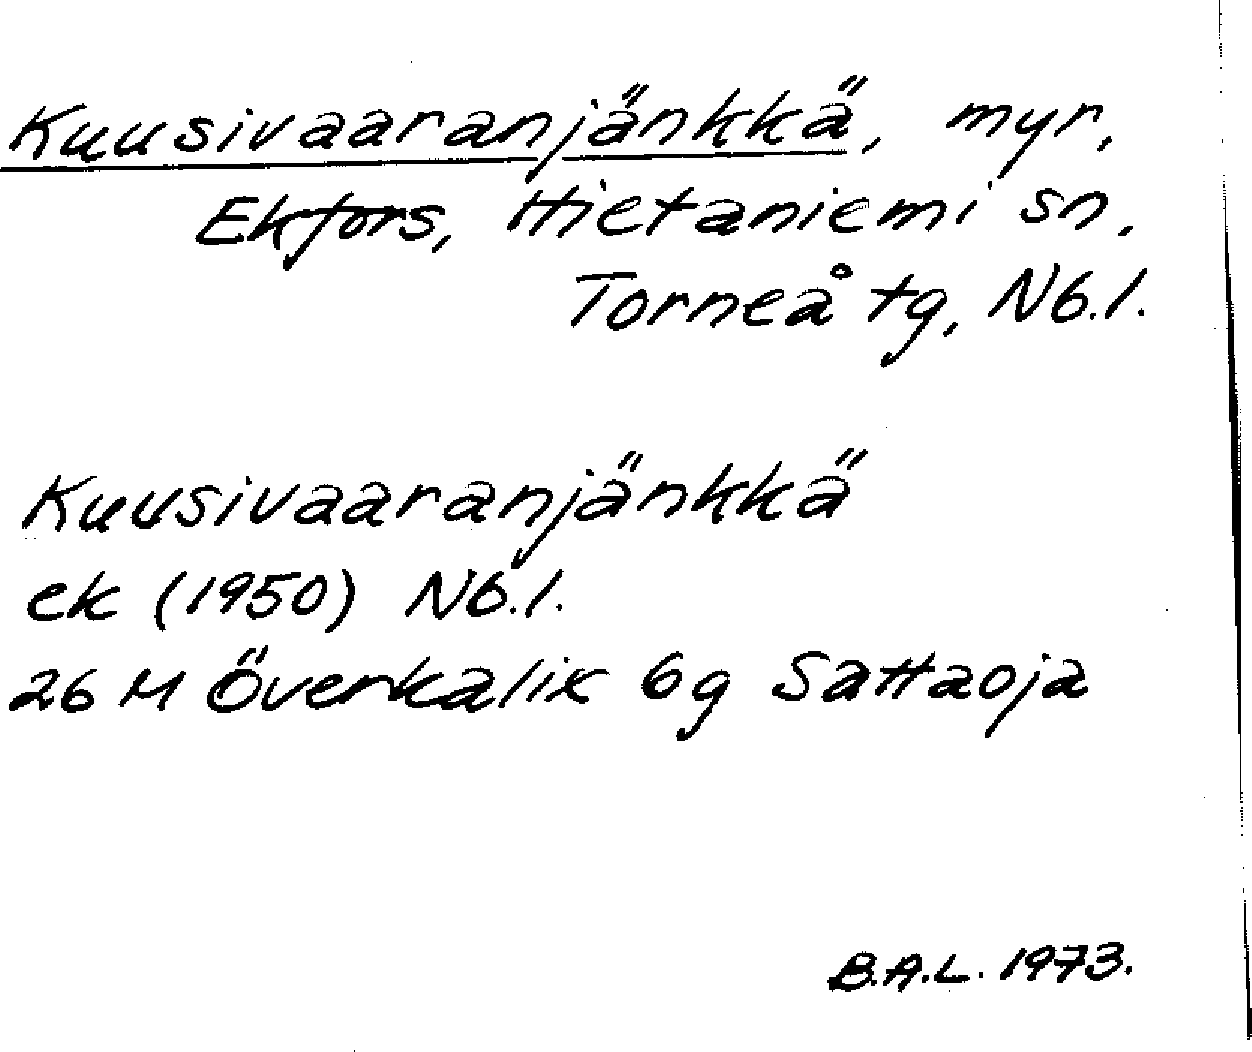 Kuusivaaranjänkkä, myr,
Ekfors, Hietaniemi sn,
Torneå tg, Nb.l.
Kuusivaaranjänkkä
ek (1950) Nb.l.
26 M Överkalix 6g Sattaoja
B.A.L. 1973.